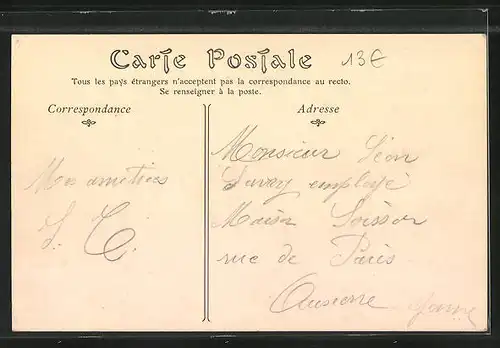 Carte Postale
13€
Tous les pays étrangers n'acceptent pas la correspondance au recto.
Se renseigner à la poste.
Correspondance
Adresse
Mes amitiées
Monsieur Léon
Savoy employé
Maison Soisson
rue de Paris
Auxerre Yonne